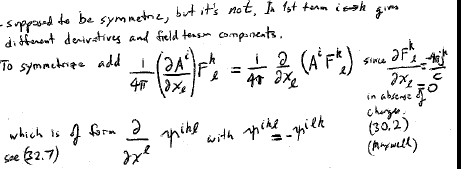 - supposed to be symmetric, but it's not. In 1st term i↔k gives
different derivatives and field tensor components.
To symmetrize add 1/4π (∂Aⁱ/∂x_ℓ) Fᵏ_ℓ = 1/4π ∂/∂x_ℓ (Aⁱ Fᵏ_ℓ) since ∂Fᵏ_ℓ/∂x_ℓ = -4πjᵏ/c
= 0
in absence of
charges.
(30.2)
(Maxwell)
which is of form ∂/∂xˡ ψⁱᵏˡ with ψⁱᵏˡ = -ψⁱˡᵏ
see (32.7)